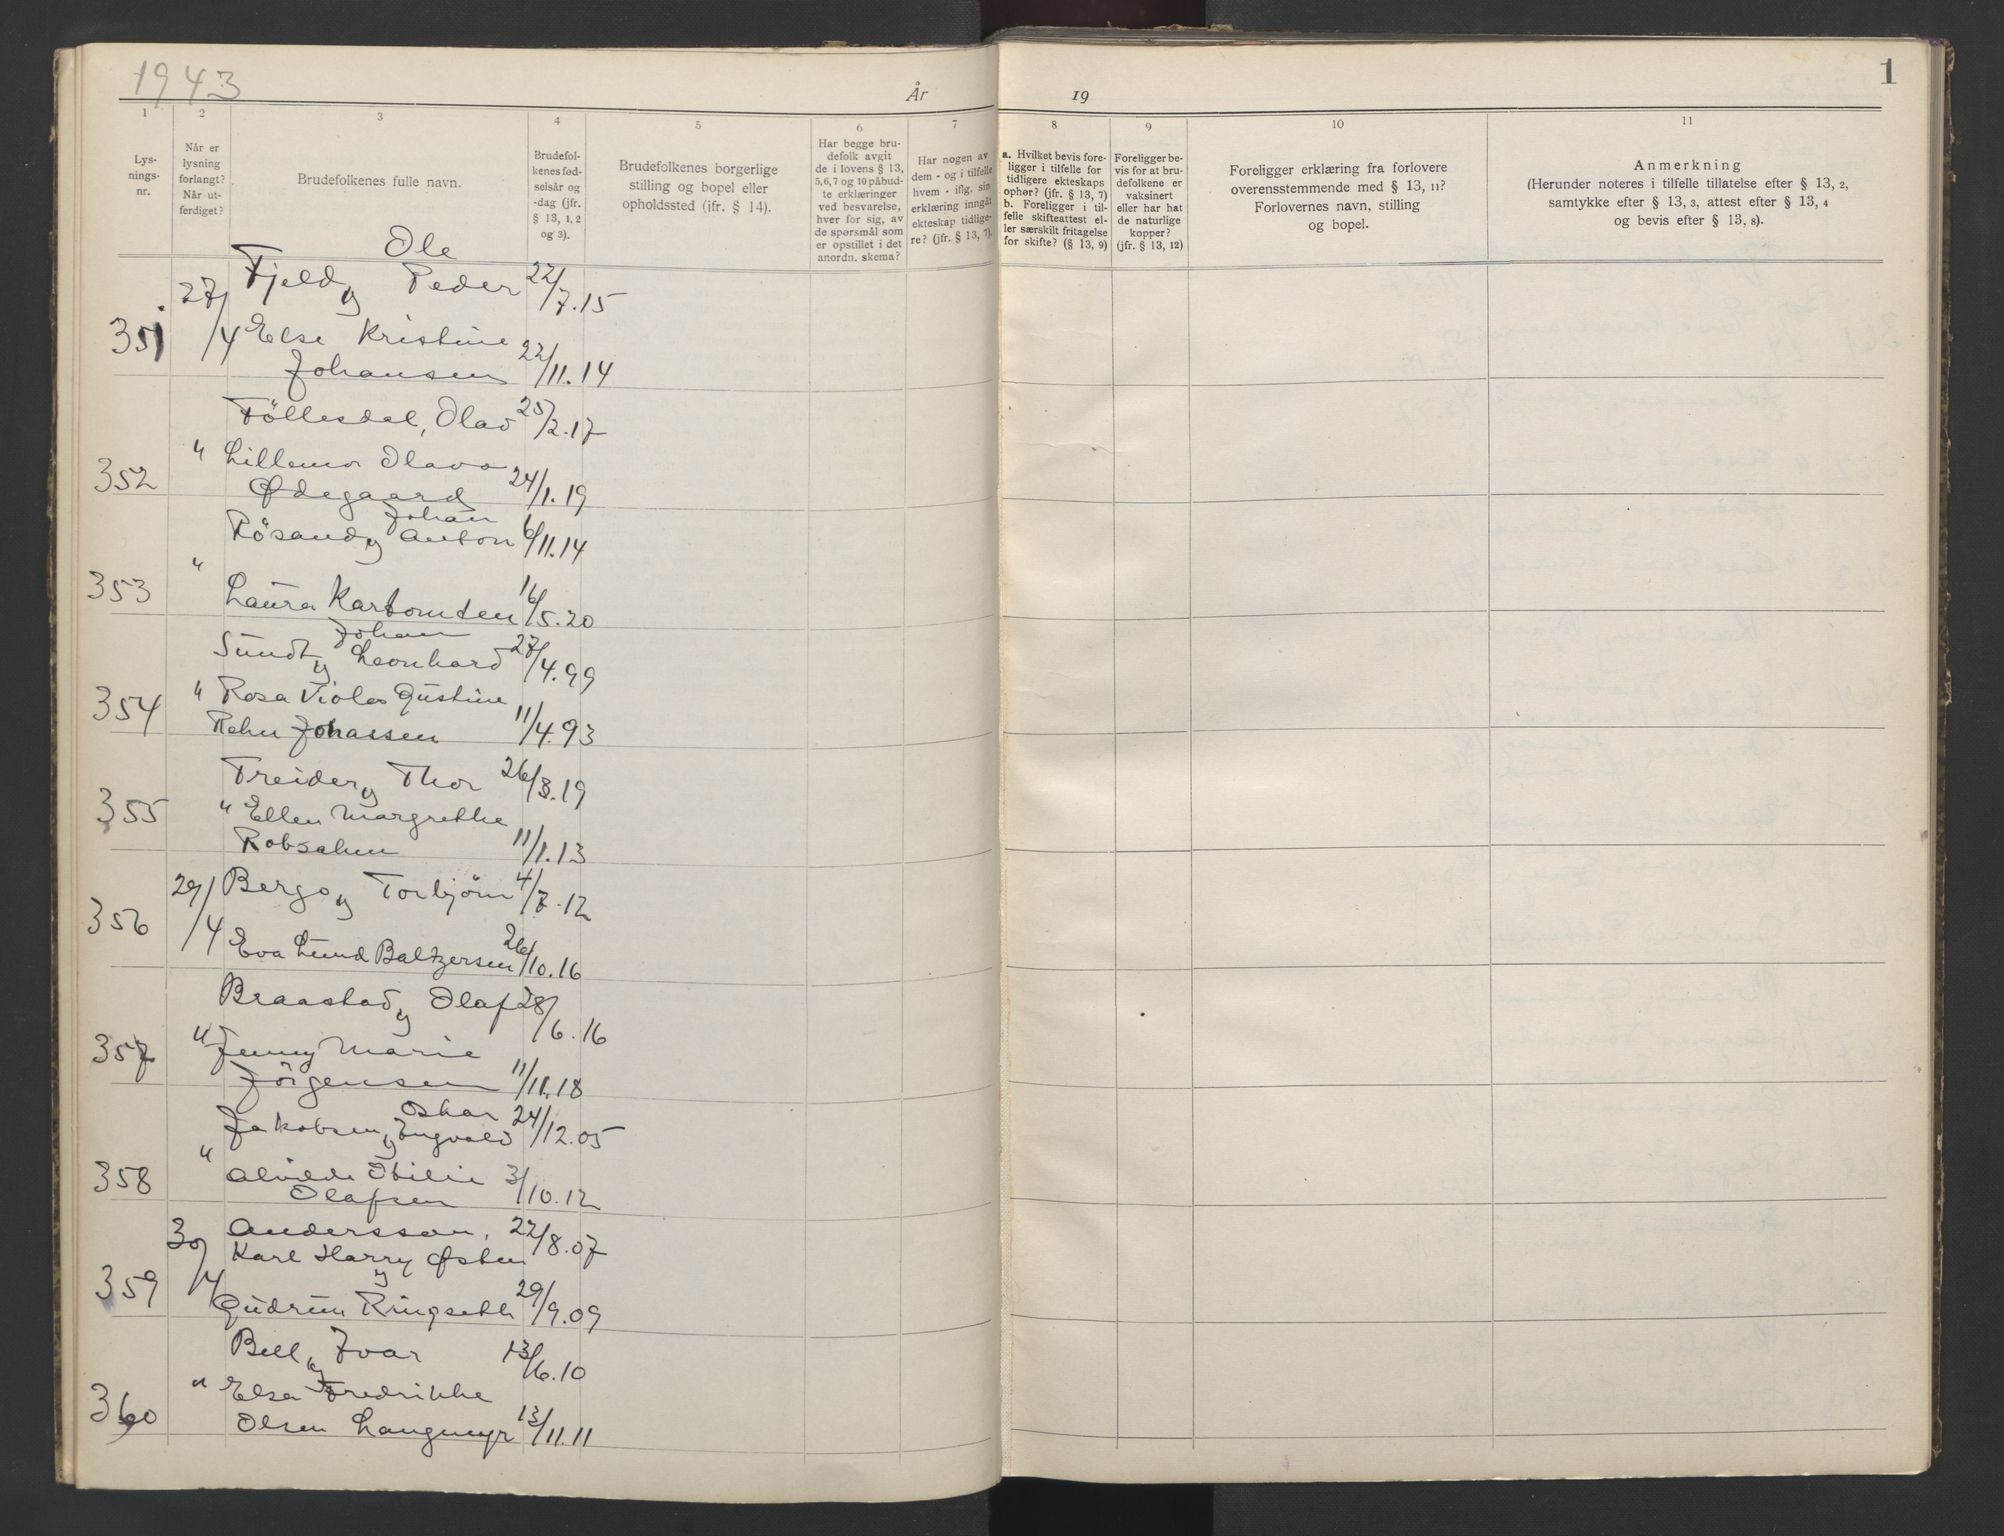 1943
År
19
1
1
2
3
4
5
6
7
8
9
10
11
Lys-
nings-
nr.
Når er
lysning
forlangt?
Når ut-
ferdiget?
Brudefolkenes fulle navn.
Brudefol-
kenes fød-
selsår og
-dag (jfr.
§ 13, 1, 2
og 3).
Brudefolkenes borgerlige
stilling og bopel eller
opholdssted (ifr. § 14).
Har begge bru-
defolk avgit
de i lovens § 13,
5,6,7 og 10 påbud-
te erklæringer
ved besvarelse,
hver for sig, av
de spørsmål som
er opstillet i det
anordn. skema?
Har nogen av
dem - og i tilfelle
hvem - iflg. sin
erklæring inngåt
ekteskap tidlige-
re? (jfr. § 13, 7).
a. Hvilket bevis fore-
ligger i tilfelle for
tidligere ekteskaps
ophør? (jfr. § 13, 7)
b. Foreligger i til-
felle skifteattest el-
ler særskilt fritagelse
for skifte? (§ 13, 9)
Foreligger be-
vis for at bru-
defolkene er
vaksinert
eller har hat
de naturlige
kopper?
(jfr. § 13, 12)
Foreligger erklæring fra forlovere
overensstemmende med § 13, 11?
Forlovernes navn, stilling
og bopel.
Anmerkning
(Herunder noteres i tilfelle tillatelse efter § 13, 2,
samtykke efter § 13, 3, attest efter § 13, 4
og bevis efter § 13, 8).
Ole
Fjeld, Peder 22/7.15
351 27/4 Else Kristine
Johansen 22/11.14
Föllesdal, Olav 25/2.17
352 " Lillemor Olava
Ødegaard 24/1.19
Johan
Rösand, Anton 6/11.14
353 "
Laura Kartomten 16/5.20
Johan
Sundt, Leonhard 27/4.99
354 " Rosa Viola Justine
Rehn Johansen 11/4.93
Treider, Thor 26/3.19
355 " Ellen Margrethe
Robsahm 11/1.13
356 29/4 Bergo, Torbjörn 4/7.12
Eva Lund Baltzersen 26/10.16
Braastad, Olaf 28/6.16
357 " Jenny Marie
Jörgensen 11/11.18
Oskar
Jakobsen, Ingvald 24/12.05
358 " Alvilde Otilie
Olafsen 3/10.12
Andersson, 22/8.07
30/4 Karl Harry Østen
359 Gudrun Ringseth 29/9.09
Bell, Ivar 13/6.10
360 " Elsa Fredrikke
Olsen Langmyr 13/11.11